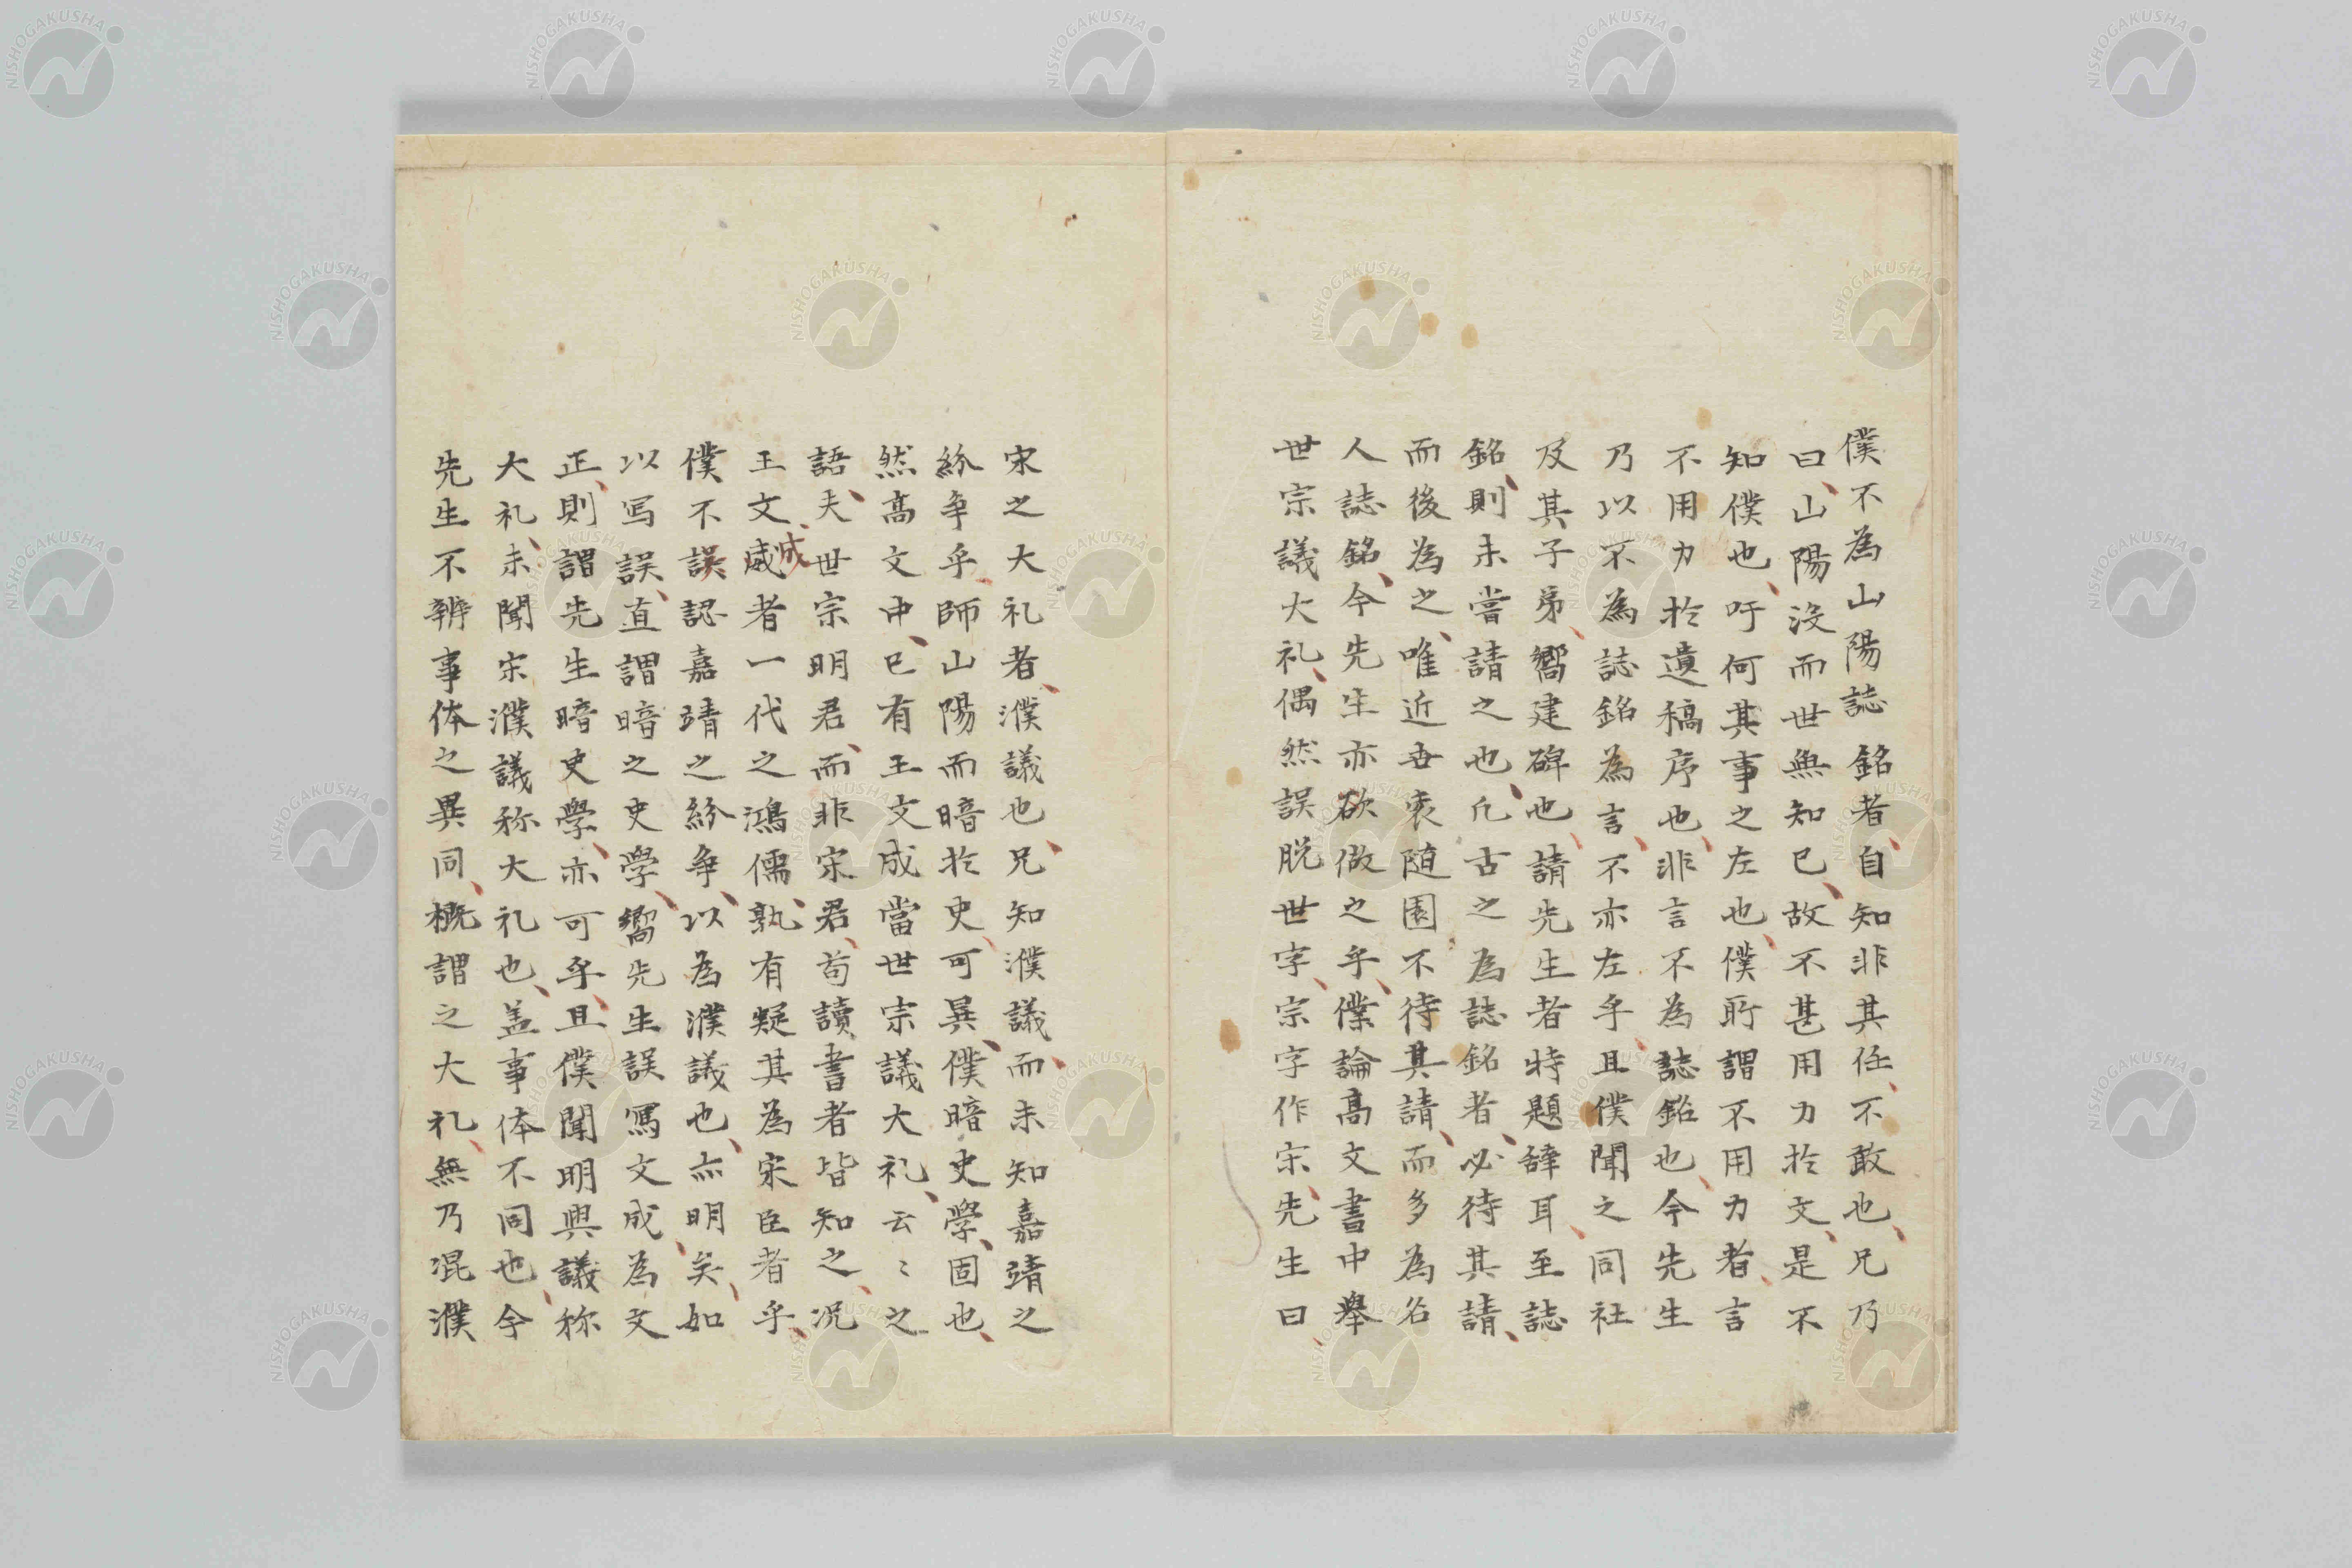 僕不為山陽誌銘者自知非其任不敢也兄乃
曰山陽没而世無知已故不甚用力於文是不
知僕也吁何其事之左也僕所謂不用力者言
不用力於遺稿序也非言不為誌銘也今先生
乃以不為誌銘為言不亦左乎且僕聞之同社
及其子弟嚮建碑也請先生者特題辞耳至誌
銘則未嘗請之也凡古之為誌銘者必待其請
而後為之唯近世袁随園不待其請而多為名
人誌銘今先生亦欲倣之乎僕論高文書中舉
世宗議大礼偶然誤脱世字宗字作宋先生曰
宋之大礼者濮議也兄知濮議而未知嘉靖之
紛争乎師山陽而暗於史可異僕暗史学固也
然高文中已有王文成當世宗議大礼云〻之
語夫世宗明君而非宋君苟讀書者皆知之况
王文威成者一代之鴻儒孰有疑其為宋臣者乎
僕不誤認嘉靖之紛争以為濮議也亦明矣如
以写誤直謂暗之史学嚮先生誤寫文成為文
正則謂先生暗史學亦可乎且僕聞明興議称
大礼未聞宋濮議称大礼也盖事体不同也今
先生不辨事体之異同概謂之大礼無乃混濮
NISHOGAKUSHA